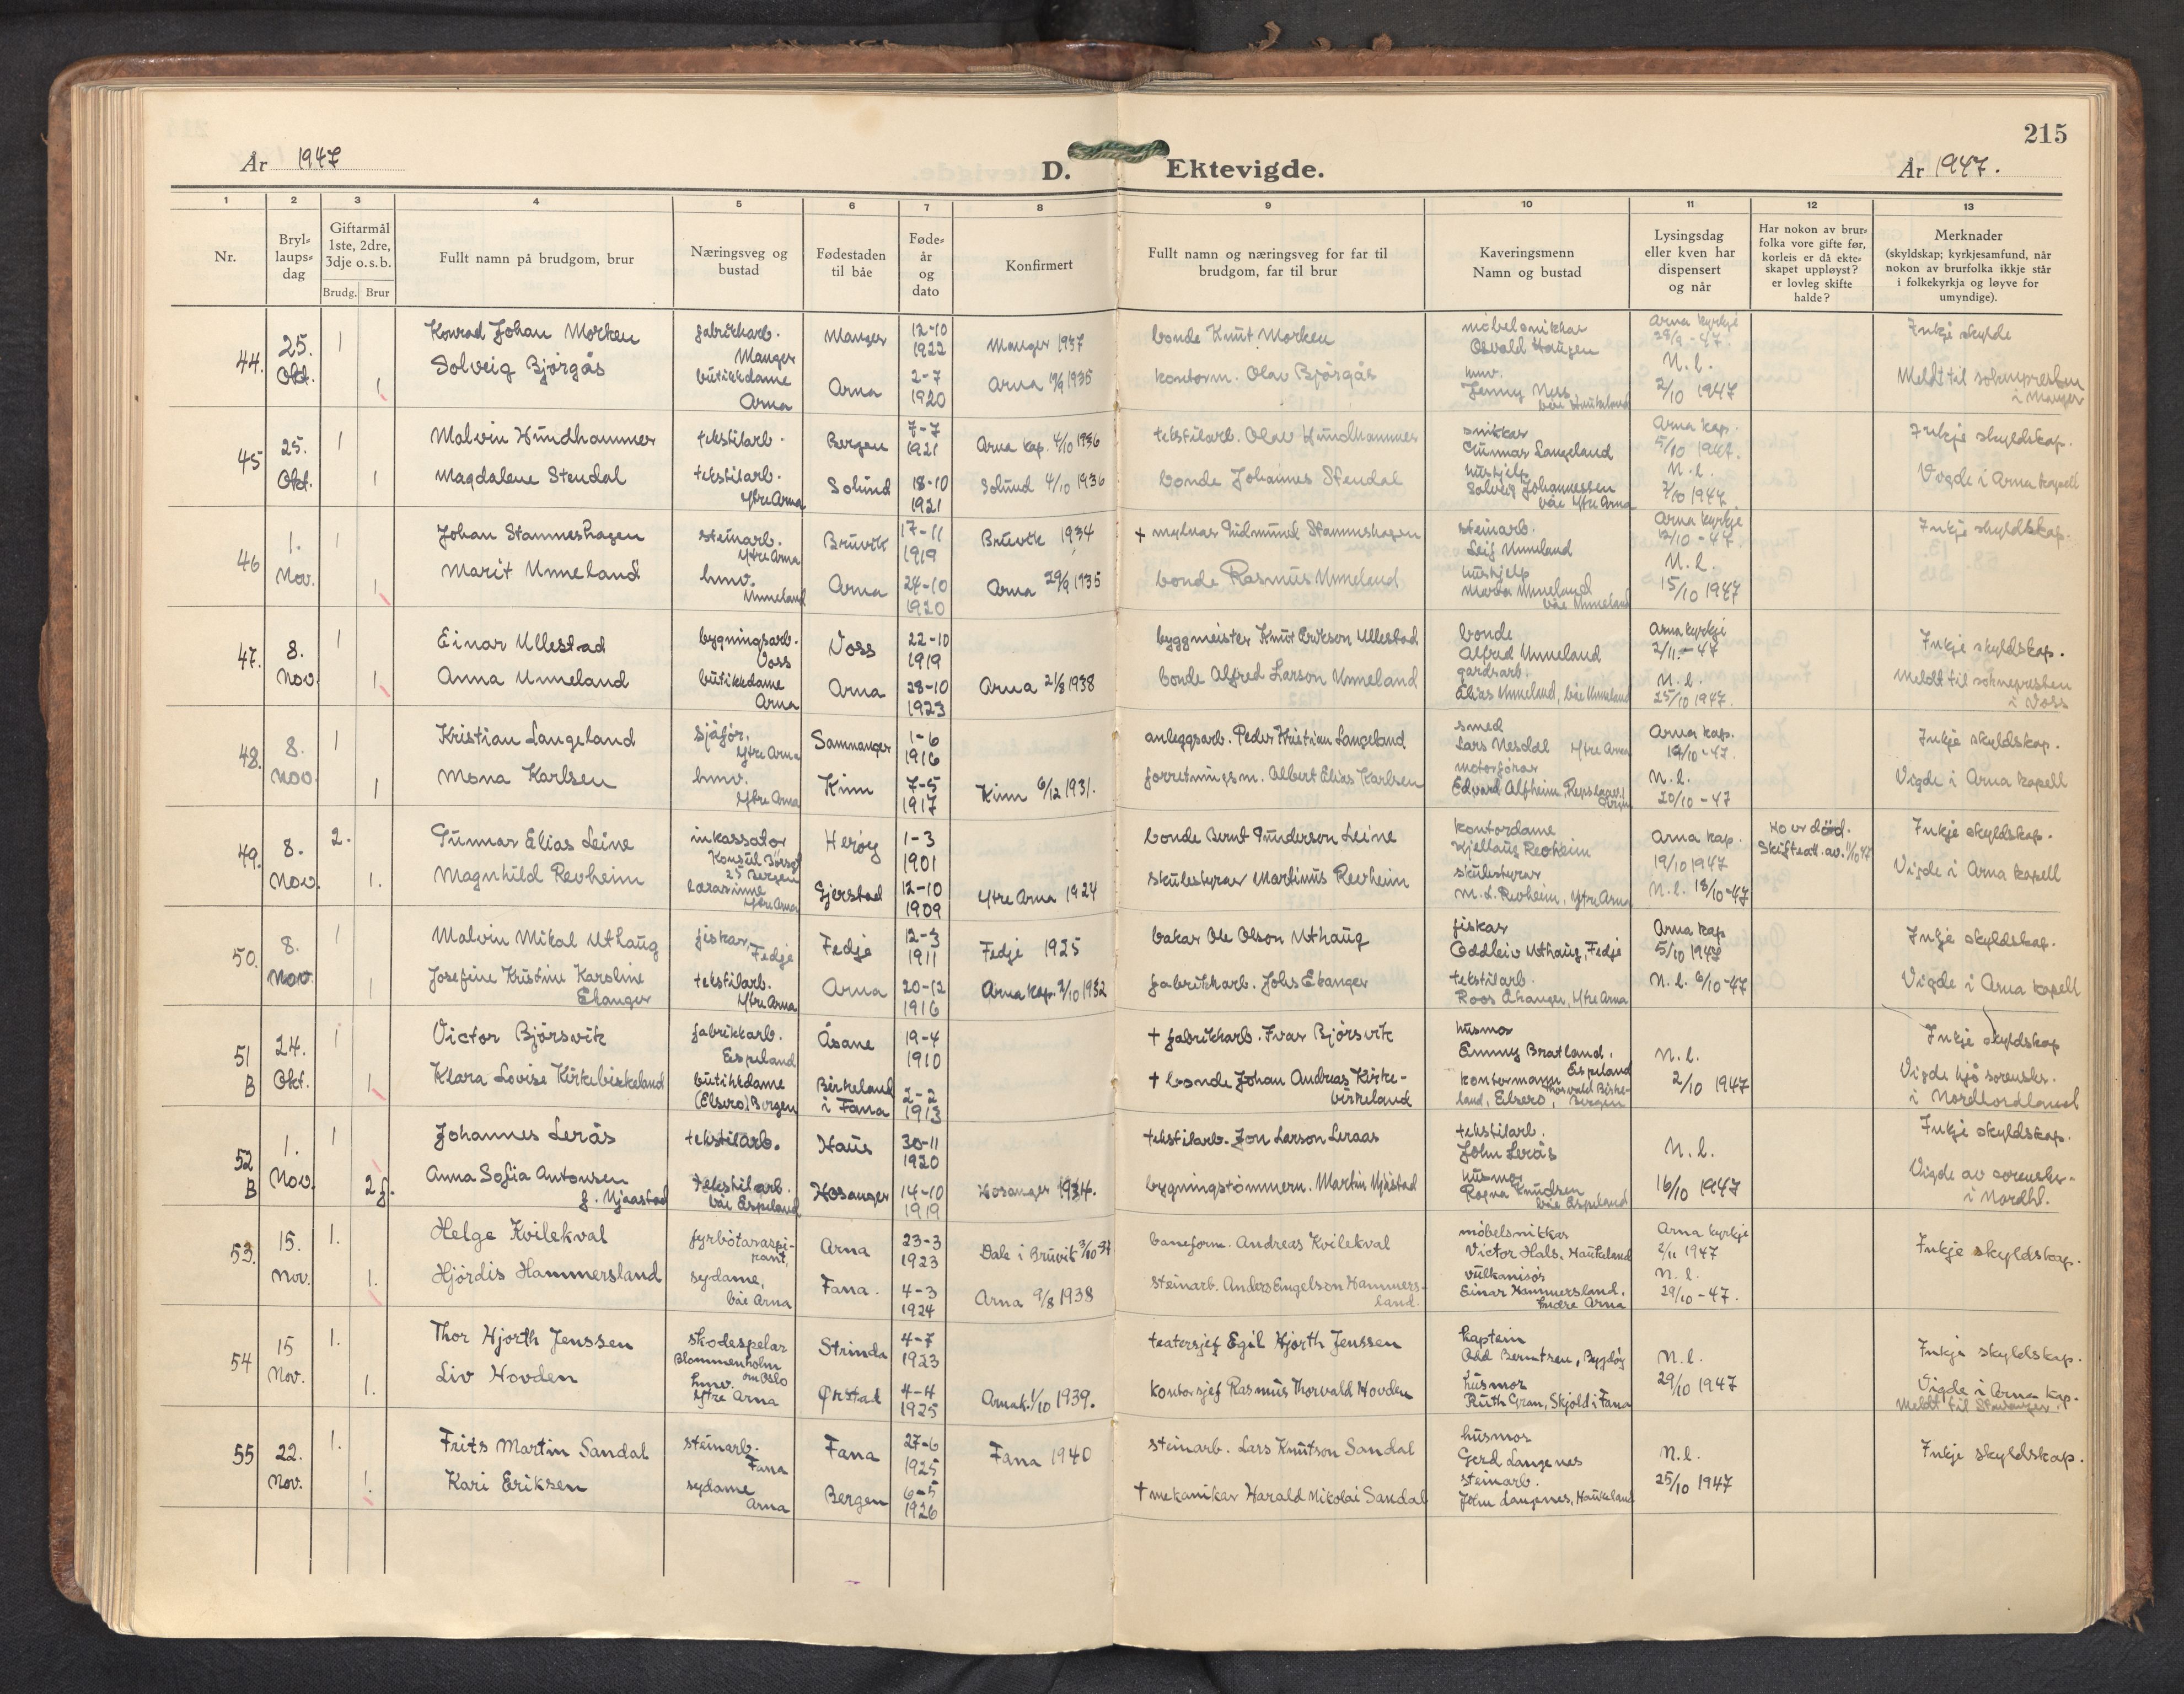 215
År 1947
D. Ektevigde.
År 1947.
1 2 3 4 5 6 7 8 9 10 11 12 13
Nr.
Bryl-
laups-
dag
Giftarmål
1ste, 2dre,
3dje o. s. b.
Brudg. Brur
Fullt namn på brudgom, brur
Næringsveg og
bustad
Fødestaden
til båe
Føde-
år
og
dato
Konfirmert
Fullt namn og næringsveg for far til
brudgom, far til brur
Kaveringsmenn
Namn og bustad
Lysingsdag
eller kven har
dispensert
og når
Har nokon av brur-
folka vore gifte før,
korleis er då ekte-
skapet uppløyst?
er lovleg skifte
halde?
Merknader
(skyldskap; kyrkjesamfund, når
nokon av brurfolka ikkje står
i folkekyrkja og løyve for
umyndige).
44. 25. Okt. 1
Konrad Johan Morken
fabrikkarb.
Manger
Manger
12-10
1922
Manger 1937
bonde Knut Morken
møbelsnikkar
Osvald Haugen
Arna kyrkje
28/9 - 47.
Inkje skylde
1
Solveig Bjørgås
butikkdame
Arna
Arna
2-7
1920
Arna 1935
kontorm. Olav Bjørgås
hmv.
Jenny Ness
båe Haukeland
N. l.
2/10 1947
Meldt til soknepresten
i Manger
45 25. Okt. 1
Malvin Hundhammer
tekstilarb.
Bergen
7-7
1921
Arna kap. 4/10 1936
tekstilarb. Olav Hundhammer
snikkar
Gunnar Langeland
Arna kap.
5/10 1947.
Inkje skyldskap.
1
Magdalene Stendal
tekstilarb.
Ytre Arna
Solund
18-10
1921
Solund 4/10 1936
bonde Johannes Stendal
hushjelp
Solveig Johannessen
båe Ytre Arna
N. l.
2/10 1947
Vigde i Arna kapell
46 1. Nov. 1
Johan Stammeshagen
steinarb.
Ytre Arna
Bruvik
17-11
1919
Bruvik 1934
+ mylnar Gudmund Stammeshagen
steinarb.
Leif Unneland
Arna kyrkje
12/10 - 47.
Inkje skyldskap.
1
Marit Unneland
hmv.
Unneland
Arna
24-10
1920
Arna 29/9 1935
bonde Rasmus Unneland
hushjelp
Marta Unneland
båe Unneland
N. l.
15/10 1947
47. 8. Nov. 1
Einar Ullestad
bygningsarb.
Voss
Voss
22-10
1919
byggmeister Knut Erikson Ullestad
bonde
Alfred Unneland
Arna kyrkje
2/11 - 47
Inkje skyldskap.
1
Anna Unneland
butikkdame
Arna
Arna
28-10
1923
Arna 21/8 1938
bonde Alfred Larson Unneland
gardsarb.
Elias Unneland, båe Unneland
N. l.
25/10 1947.
Meldt til soknepresten
i Voss
48. 8. Nov. 1
Kristian Langeland
sjåfør,
Ytre Arna
Samnanger
1-6
1916
anleggsarb. Peder Kristian Langeland
smed
Lars Nesdal Ytre Arna
Arna kap.
19/10 - 47.
Inkje skyldskap.
1
Mona Karlsen
hmv.
Ytre Arna
Kinn
7-5
1917
Kinn 6/12 1931.
forretningsm. Albert Elias Karlsen
motorførar
Edvard Alfheim,
N. l.
20/10 - 47
Vigde i Arna kapell
49. 8. Nov. 2.
Gunnar Elias Leine
inkassator
Konsul Børsgt
25 Bergen
Herøy
1-3
1901
bonde Bernt Gunderson Leine
kontordame
Kjellaug Revheim
Arna kap.
19/10 1947
Ho er död.
Skifteatt. av. 1/10 47
Inkje skyldskap.
1.
Magnhild Revheim
lærarinne
Ytre Arna
Gjerstad
12-10
1909
Ytre Arna 1924
skulestyrar Martinus Revheim
skulestyrar
M. L. Revheim, Ytre Arna
N. l. 18/10-47
Vigde i Arna kapell
50. 8. Nov. 1
Malvin Mikal Uthaug
fiskar,
Fedje
Fedje
12-3
1911
Fedje 1925
bakar Ole Olson Uthaug
fiskar
Oddleiv Uthaug, Fedje
Arna kap
5/10 1947
Inkje skyldskap.
1
Josefine Kristine Karoline
Ekanger
tekstilarb.
Ytre Arna
Arna
20-12
1916
Arna kap. 2/10 1932
fabrikkarb. Johs Ekanger
tekstilarb.
Roos Ekanger, Ytre Arna
N. l. 6/10-47
Vigde i Arna kapell
51 B 24. Okt. 1
Victor Bjørsvik
fabrikkarb.
Espeland
Åsane
19-4
1910
+ fabrikkarb. Ivar Bjørsvik
husmor
Emmy Bratland,
Espeland
N. l.
2/10 1947
Inkje skyldskap
1
Klara Lovise Kirkebirkeland
butikkdame
(Elsero) Bergen
Birkeland
i Fana
2-2
1913
+ bonde Johan Andreas Kirke-
birkeland
kontormann
Torvald Birke-
land, Elsero, Bergen
Vigde hjå sorenskr.
i Nordhordland
52 B 1. Nov. 1
Johannes Lerås
tekstilarb.
Haus
30-11
1920
tekstilarb. Jon Larson Leraas
tekstilarb.
John Lerås
N. l.
16/10 1947
Inkje skyldskap.
2 f.
Anna Sofia Antonsen
f. Mjaastad
tekstilarb.
båe Espeland
Hosanger
14-10
1919
Hosanger 1934.
bygningstømmerm. Martin Mjåstad
husmor
Ragna Knudsen
båe Espeland
Vigde av sorenskr.
i Nordhl.
53. 15. Nov. 1.
Helge Kvilekval
fyrbøtaraspi-
rant,
Arna
23-3
1923
Dale i Bruvik 3/10-37
baneform. Andreas Kvilekval
møbelsnikkar
Victor Hals, Haukeland
Arna kyrkje
2/11 1947
Inkje skyldskap.
1.
Hjördis Hammersland
sydame,
båe Arna
Fana.
4-3
1924
Arna 9/8 1938
steinarb. Anders Engelson Hammers-
land.
vulkanisør
Einar Hammersland,
Indre Arna
N. l.
29/10 - 47.
54 15 Nov. 1.
Thor Hjorth Jenssen
skodespelar
Blommenholm
om Oslo
Strinda
4-7
1923
teatersjef Egil Hjorth Jenssen
kaptein
Odd Berntsen, Bygdøy
N. l.
29/10 1947
Inkje skyldskap.
1.
Liv Hovden
hmv.
Ytre Arna
Ørstad
4-4
1925
Arnak. 1/10 1939.
kontorsjef Rasmus Thorvald Hovden
husmor
Ruth Gran, Skjold i Fana
Vigde i Arna kap.
Meldt til Stavanger.
55 22. Nov. 1.
Frits Martin Sandal
steinarb.
Fana
Fana
27-6
1925
Fana 1940
steinarb. Lars Knutson Sandal
husmor
Gerd Langenes
N. l.
25/10 1947
Inkje skyldskap.
1.
Kari Eriksen
sydame
Arna
Bergen
6-5
1926
+ mekanikar Harald Mikolai Sandal
steinarb.
John Langnes, Haukeland